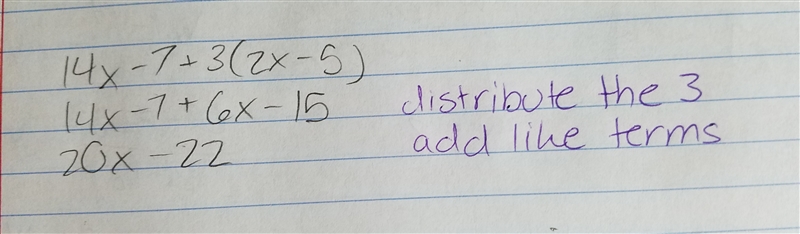 14x - 7 + 3(2x - 5)
14x - 7 + 6x - 15 distribute the 3
20x - 22 add like terms